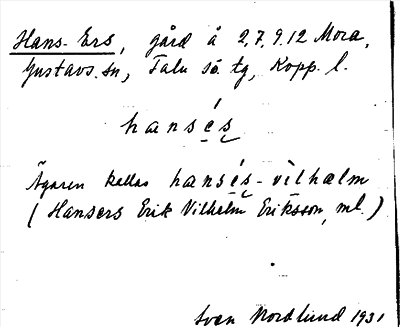 Hans-Ers, gård å 2,7,9,12 Mora,
Gustavs sn, Falu sö. tg, Kopp. l.
hansés
Ägaren kallas hansés-vìlhælm
(Hansers Erik Vilhelm Eriksson, ml.)
Sven Nordlund 1931